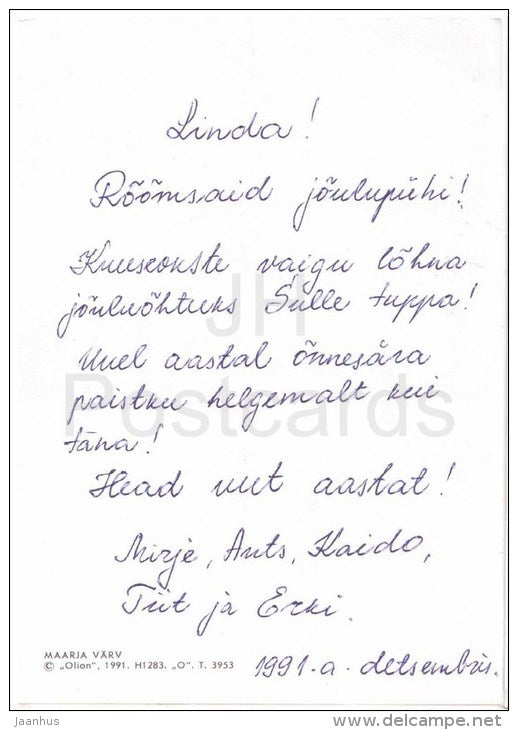 Linda!
Rõõmsaid jõulupühi!
Kuuseokste vaigu lõhna
jõuluõhtuks Sulle tuppa!
Uuel aastal õnnesära
paistku helgemalt kui
täna!
Head uut aastat!
Mirje, Ants, Kaido,
Tiit ja Erki.
1991.a. detsembris.
MAARJA VÄRV
© „Olion", 1991. H1283. „O". T. 3953
JH
Postcards
jaanhus
www.delcampe.net